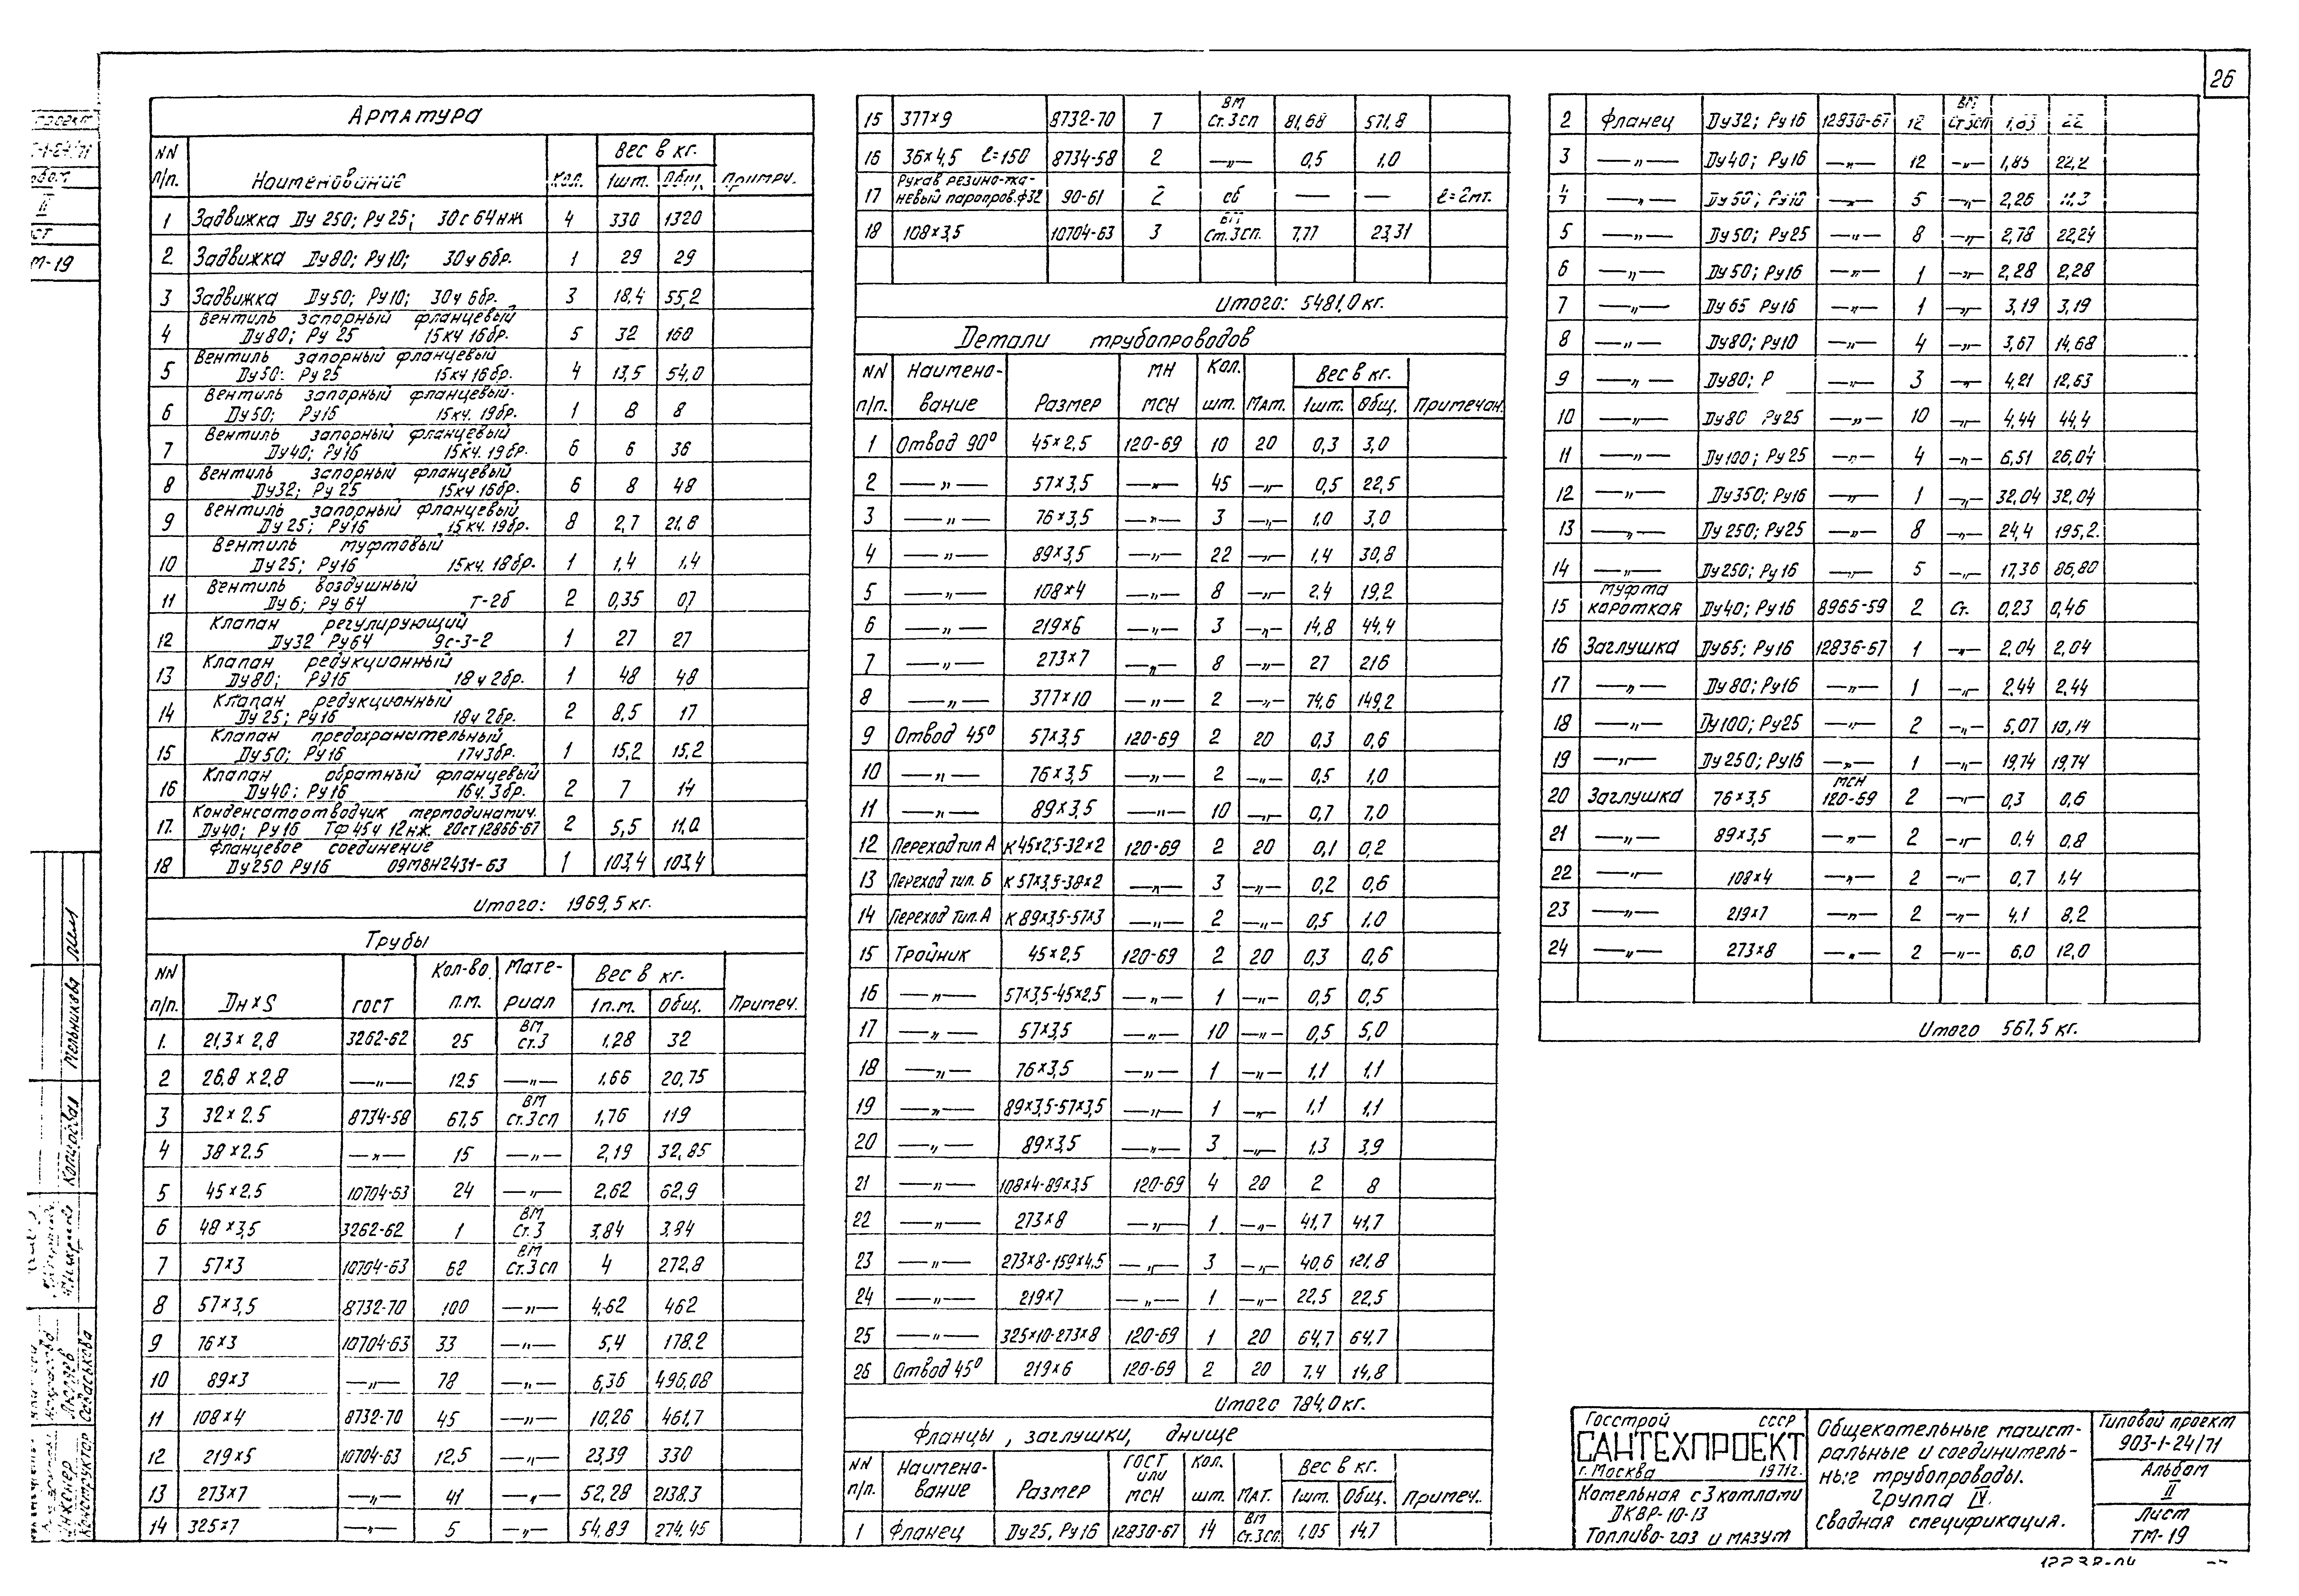 26
Арматура
NN п/п. Наименование Кол. Вес в кг. 1шт. Общ. Примеч.
1 Задвижка Ду 250; Ру 25; 30с 64нж 4 330 1320
2 Задвижка Ду80; Ру10; 30ч6бр. 1 29 29
3 Задвижка Ду50; Ру10; 30ч6бр. 3 18,4 55,2
4 Вентиль запорный фланцевый Ду80; Ру 25 15кч 16бр. 5 32 160
5 Вентиль запорный фланцевый Ду50: Ру 25 15кч 16бр. 4 13,5 54,0
6 Вентиль запорный фланцевый. Ду50; Ру16 15кч. 19бр. 1 8 8
7 Вентиль запорный фланцевый Ду40; Ру16 15кч. 19бр. 6 6 36
8 Вентиль запорный фланцевый Ду32; Ру 25 15кч 16бр. 6 8 48
9 Вентиль запорный фланцевый Ду 25; Ру16 15кч. 19бр. 8 2,7 21,8
10 Вентиль муфтовый Ду25; Ру16 15кч. 18бр. 1 1,4 1,4
11 Вентиль воздушный Ду6; Ру 64 Т-2б 2 0,35 0,7
12 Клапан регулирующий Ду32 Ру64 9с-3-2 1 27 27
13 Клапан редукционный Ду80; Ру16 18ч2бр. 1 48 48
14 Клапан редукционный Ду 25; Ру16 18ч2бр. 2 8,5 17
15 Клапан предохранительный Ду50; Ру16 17ч3бр. 1 15,2 15,2
16 Клапан обратный фланцевый Ду40; Ру16 16ч.3бр. 2 7 14
17. Конденсатоотводчик термодинамич. Ду40; Ру16 Тф 45ч 12нж. 20ст12866-67 2 5,5 11,0
18 Фланцевое соединение Ду250 Ру16 09М8Н2431-63 1 103,4 103,4
Итого: 1969,5 кг.
Трубы
NN п/п. Dн x S ГОСТ Кол-во. п.м. Мате-риал Вес в кг. 1п.м. Общ. Примеч.
1. 21,3 x 2,8 3262-62 25 ВМ Ст.3 1,28 32
2 26,8 x 2,8 —„— 12,5 —„— 1,66 20,75
3 32 x 2.5 8734-58 67,5 ВМ Ст.3 сп 1,76 119
4 38 x 2.5 —„— 15 —„— 2,19 32,85
5 45 x 2,5 10704-63 24 —„— 2,62 62,9
6 48 x 3,5 3262-62 1 ВМ Ст.3 3,84 3,84
7 57x3 10704-63 68 ВМ Ст.3 сп 4 272,8
8 57 x 3,5 8732-70 100 —„— 4,62 462
9 76 x 3 10704-63 33 —„— 5,4 178,2
10 89x3 —„— 78 —„— 6,36 496,08
11 108 x 4 8732-70 45 —„— 10,26 461,7
12 219x5 10704-63 12,5 —„— 23,39 330
13 273x7 —„— 41 —„— 52,28 2138,3
14 325x7 —„— 5 —„— 54,89 274,45
15 377x9 8732-70 7 ВМ Ст.3 сп 81,68 571,8
16 36x4,5 ℓ=150 8734-58 2 —„— 0,5 1,0
17 Рукав резино-тка-невый паропров.ф32 90-61 2 сб — — ℓ=2мт.
18 108x3,5 10704-63 3 ВМ Ст.3 сп. 7,77 23,31
Итого: 5481,0 кг.
Детали трубопроводов
NN п/п. Наимено-вание Размер МН МСН Кол. шт. Мат. Вес в кг. 1шт. Общ. Примечан.
1 Отвод 90° 45x2,5 120-69 10 20 0,3 3,0
2 —„— 57x3,5 —„— 45 —„— 0,5 22,5
3 —„— 76x3,5 —„— 3 —„— 1,0 3,0
4 —„— 89x3,5 —„— 22 —„— 1,4 30,8
5 —„— 108x4 —„— 8 —„— 2,4 19,2
6 —„— 219x6 —„— 3 —„— 14,8 44,4
7 —„— 273x7 —„— 8 —„— 27 216
8 —„— 377x10 —„— 2 —„— 74,6 149,2
9 Отвод 45° 57x3,5 120-69 2 20 0,3 0,6
10 —„— 76x3,5 —„— 2 —„— 0,5 1,0
11 —„— 89x3,5 —„— 10 —„— 0,7 7,0
12 Переход тип А К45x2,5-32x2 120-69 2 20 0,1 0,2
13 Переход тип. Б К 57x3,5-38x2 —„— 3 —„— 0,2 0,6
14 Переход Тип.А К 89x3,5-57x3 —„— 2 —„— 0,5 1,0
15 Тройник 45x2,5 120-69 2 20 0,3 0,6
16 —„— 57x3,5-45x2,5 —„— 1 —„— 0,5 0,5
17 —„— 57x3,5 —„— 10 —„— 0,5 5,0
18 —„— 76x3,5 —„— 1 —„— 1,1 1,1
19 —„— 89x3,5-57x3,5 —„— 1 —„— 1,1 1,1
20 —„— 89x3,5 —„— 3 —„— 1,3 3,9
21 —„— 108x4-89x3,5 120-69 4 20 2 8
22 —„— 273x8 —„— 1 —„— 41,7 41,7
23 —„— 273x8-159x4,5 —„— 3 —„— 40,6 121,8
24 —„— 219x7 —„— 1 —„— 22,5 22,5
25 —„— 325x10-273x8 120-69 1 20 64,7 64,7
26 Отвод 45° 219x6 120-69 2 20 7,4 14,8
Итого 784,0 кг.
Фланцы, заглушки, днище
NN п/п. Наимено-вание Размер ГОСТ или МСН Кол. шт. Мат. Вес в кг. 1шт. Общ. Примеч.
1 Фланец Ду25, Ру16 12830-67 14 ВМ Ст.3 сп. 1,05 14,7
2 Фланец Ду32; Ру16 12830-67 12 ВМ Ст3сп 1,83 22
3 —„— Ду40; Ру16 —„— 12 —„— 1,85 22,2
4 —„— Ду50; Ру10 —„— 5 —„— 2,26 11,3
5 —„— Ду50; Ру25 —„— 8 —„— 2,78 22,24
6 —„— Ду50; Ру16 —„— 1 —„— 2,28 2,28
7 —„— Ду65 Ру16 —„— 1 —„— 3,19 3,19
8 —„— Ду80; Ру10 —„— 4 —„— 3,67 14,68
9 —„— Ду80; Р —„— 3 —„— 4,21 12,63
10 —„— Ду80 Ру25 —„— 10 —„— 4,44 44,4
11 —„— Ду100; Ру25 —„— 4 —„— 6,51 26,04
12 —„— Ду350; Ру16 —„— 1 —„— 32,04 32,04
13 —„— Ду250; Ру25 —„— 8 —„— 24,4 195,2.
14 —„— Ду250; Ру16 —„— 5 —„— 17,36 86,80
15 Муфта короткая Ду40; Ру16 8966-59 2 Ст. 0,23 0,46
16 Заглушка Ду65; Ру16 12836-67 1 —„— 2,04 2,04
17 —„— Ду80; Ру16 —„— 1 —„— 2,44 2,44
18 —„— Ду100; Ру25 —„— 2 —„— 5,07 10,14
19 —„— Ду250; Ру16 —„— 1 —„— 19,74 19,74
20 Заглушка 76x3,5 МСН 120-69 2 —„— 0,3 0,6
21 —„— 89x3,5 —„— 2 —„— 0,4 0,8
22 —„— 108x4 —„— 2 —„— 0,7 1,4
23 —„— 219x7 —„— 2 —„— 4,1 8,2
24 —„— 273x8 —„— 2 —„— 6,0 12,0
Итого 567,5 кг.
Госстрой СССР
САНТЕХПРОЕКТ
г. Москва 1971г.
Котельная с 3 котлами
ДКВР-10-13
Топливо-газ и мазут
Общекотельные магист-
ральные и соединитель-
ные трубопроводы.
Группа IV.
Сводная спецификация.
Типовой проект
903-1-24/71
Альбом
II
Лист
ТМ-19
М-19
Мельникова
Копцовая
Инженер Ляляев
Конструктор Саваськова